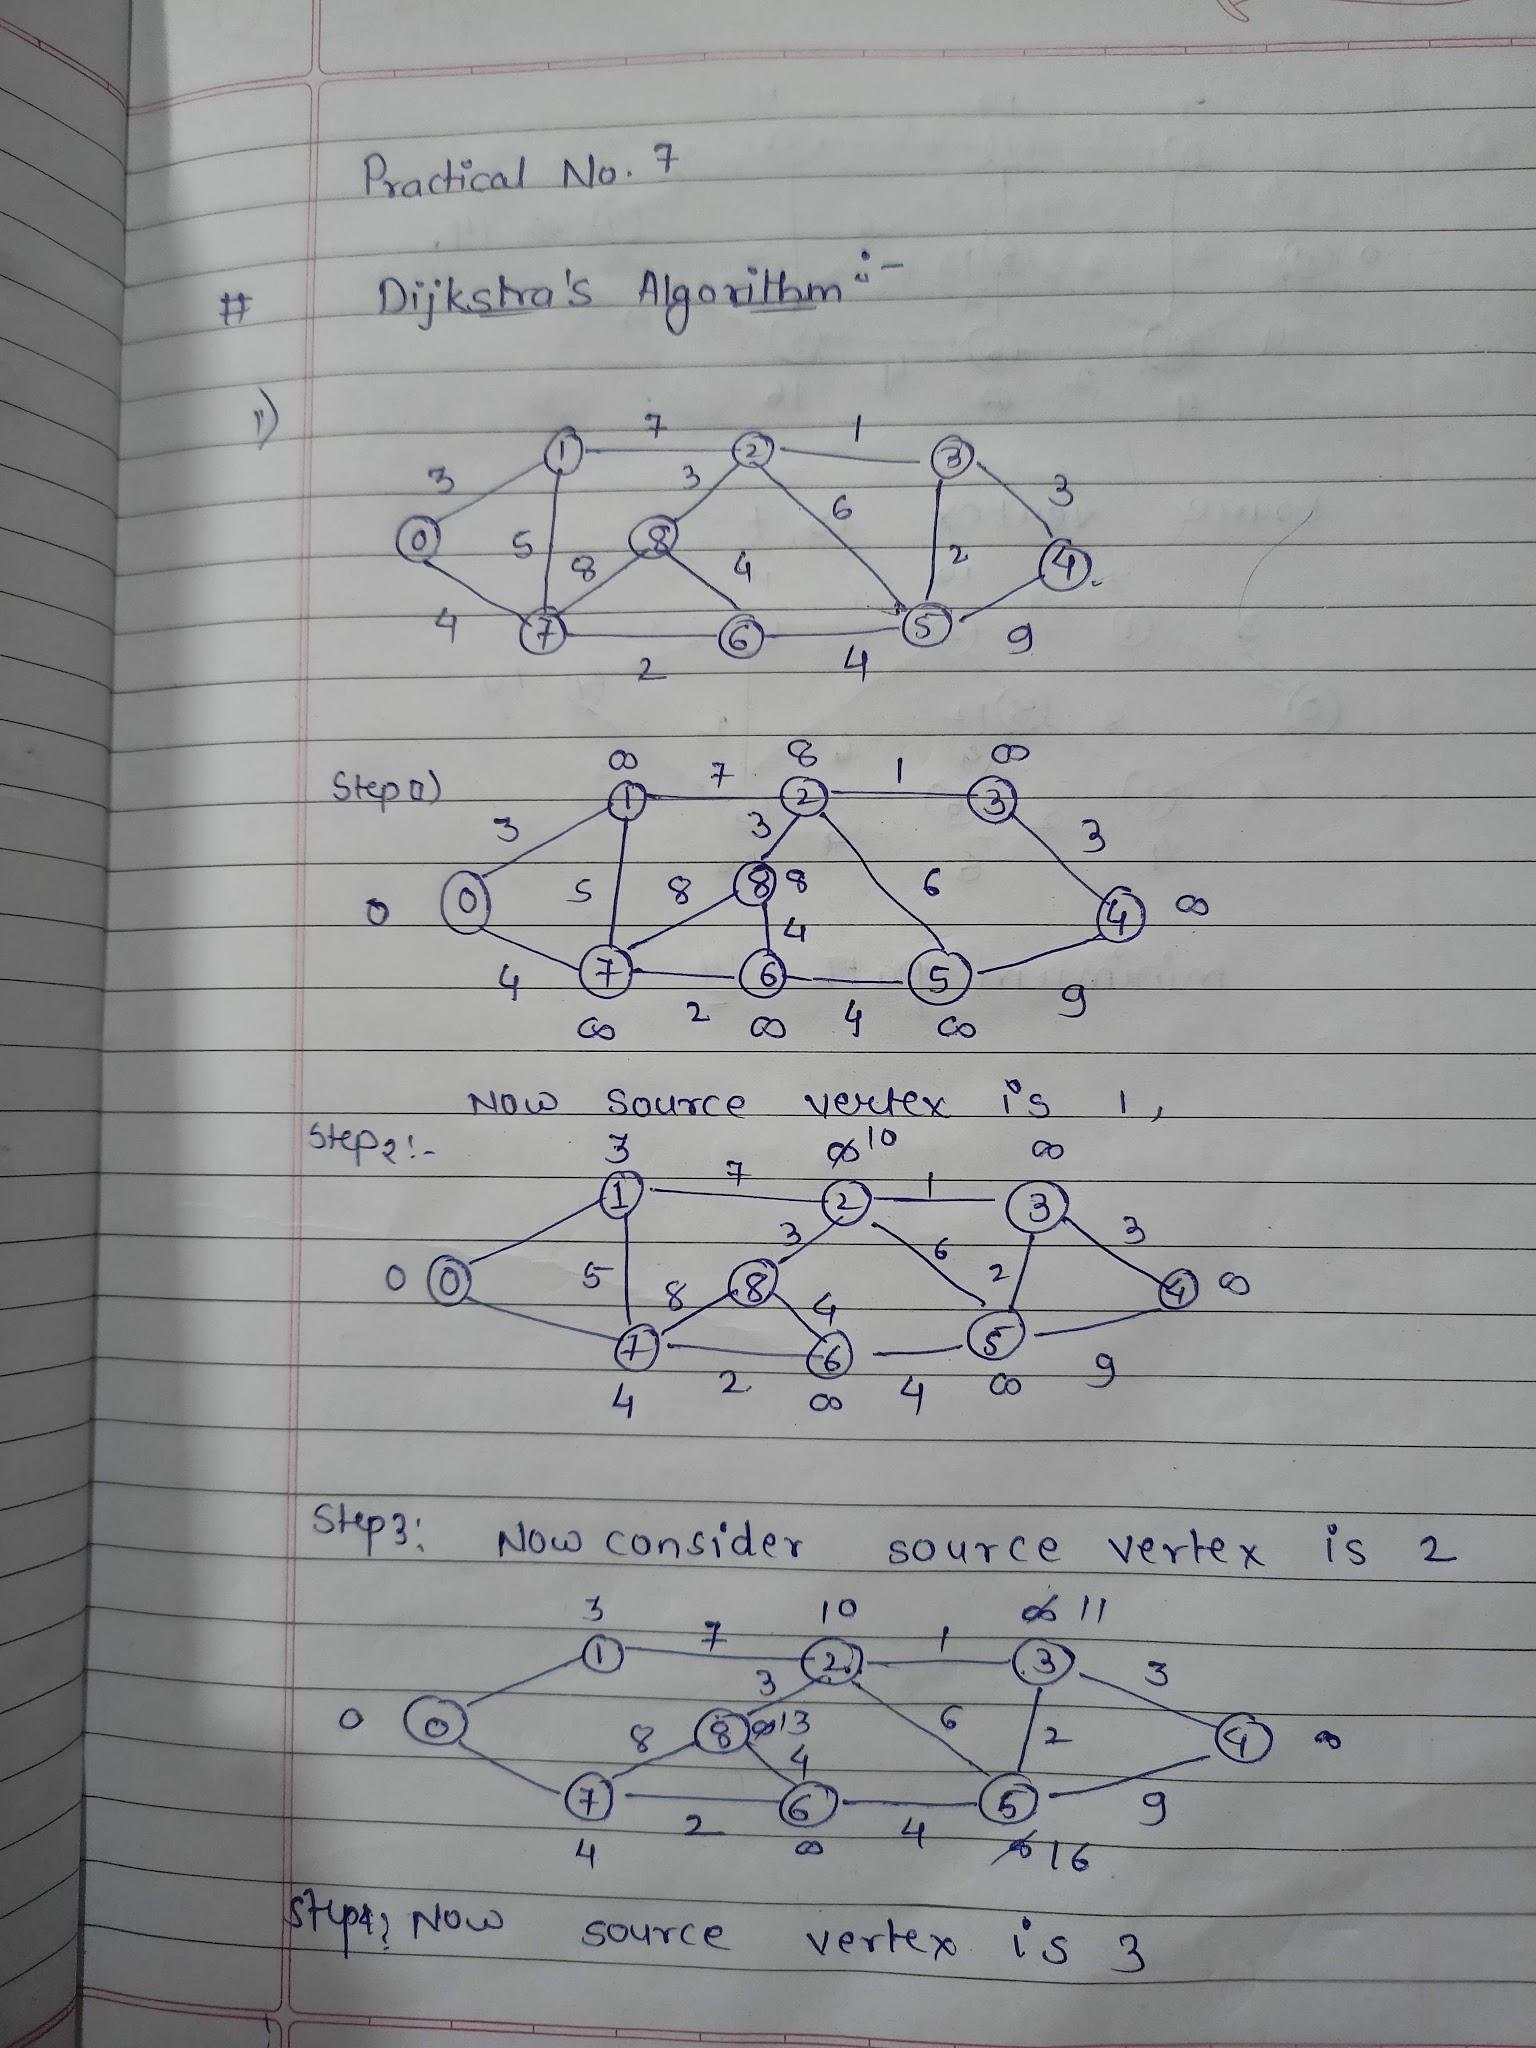 Practical No. 7
# Dijkstra's Algorithm :-
1)
7 1
1 2 3
3 3 6 3
0 5 8 8 4 2 4
4 7 6 5 9
2 4
∞ 8 ∞
Step 1) 7 1
1 2 3
3 3 3
0 0 5 8 8 8 6 4 ∞
4
4 7 6 5
2 4 9
∞ ∞ ∞
Now source vertex is 1,
Step2:- 3 ∞ 10 ∞
7 1
1 2 3
3 6 2 3
0 0 5 8 8 4 4 ∞
7 6 5
2 4 9
4 ∞ ∞
Step3: Now consider source vertex is 2
3 10 ∞ 11
7 1
1 2 3
3 3
0 0 8 8 ∞ 13 6 2 4 ∞
4
7 6 5
2 4 9
4 ∞ ∞ 16
Step4: Now source vertex is 3